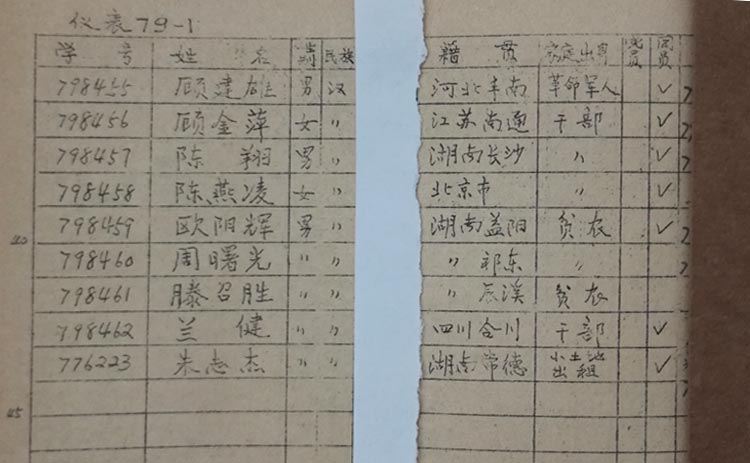 仪表79-1
学号 姓名 性别 民族 籍贯 家庭出身 党员 团员
798455 顾建雄 男 汉 河北丰南 革命军人 ✓
798456 顾金萍 女 〃 江苏南通 干部 ✓
798457 陈翔 男 〃 湖南长沙 〃 ✓
798458 陈燕凌 女 〃 北京市 〃 ✓
40 798459 欧阳辉 男 〃 湖南益阳 贫农 ✓
798460 周曙光 〃 〃 〃 祁东 〃
798461 滕召胜 〃 〃 〃 辰溪 贫农
798462 兰健 〃 〃 四川合川 干部 ✓
776223 朱志杰 〃 〃 湖南常德 小土地出租 ✓
45